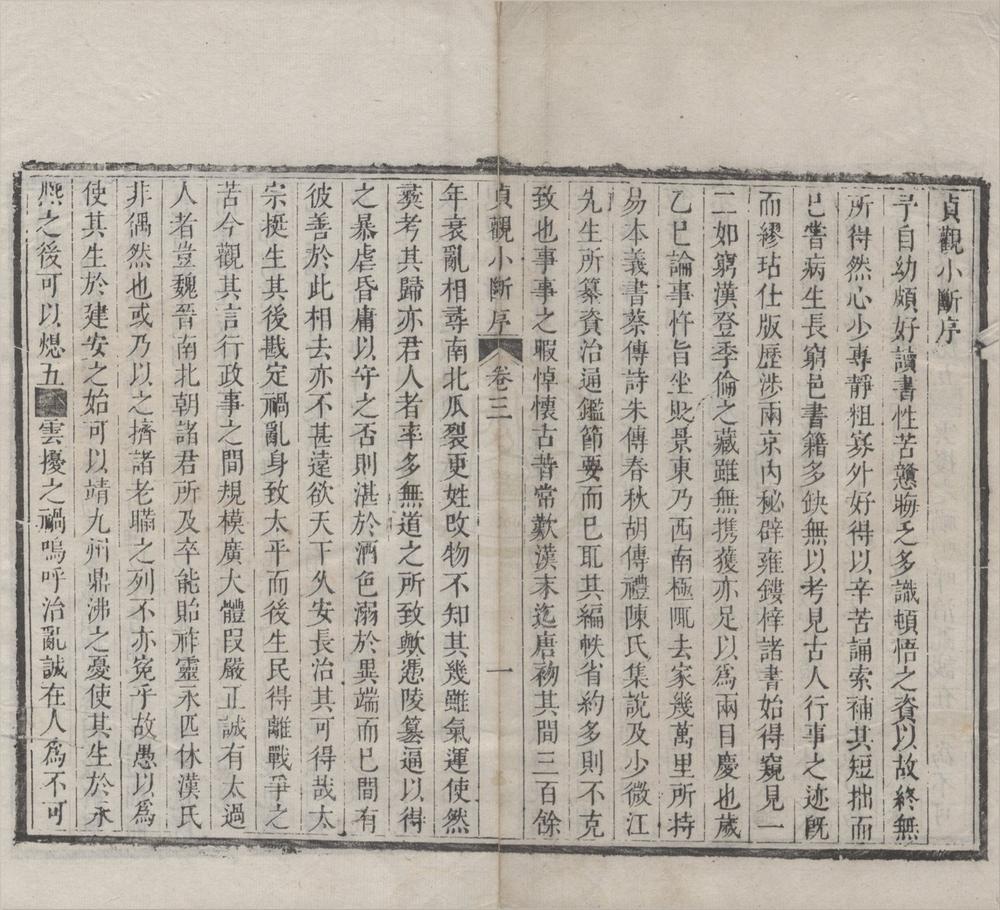 貞觀小斷序
予自幼頗好讀書性苦戇晦乏多識頓悟之資以故終無
所得然心少專靜粗寡外好得以辛苦誦索補其短拙而
已嘗病生長窮邑書籍多缺無以考見古人行事之迹旣
而繆玷仕版歷涉兩京內秘辟雍鏤梓諸書始得窺見一
二如窮漢登季倫之藏雖無携獲亦足以爲兩目慶也歲
乙巳論事忤旨坐貶景東乃西南極陬去家幾萬里所持
易本義書蔡傳詩朱傳春秋胡傳禮陳氏集說及少微江
先生所纂資治通鑑節要而已耴其編帙省約多則不克
致也事事之暇悼懷古昔常歎漢末迄唐初其間三百餘
貞觀小斷序 卷三 一
年衰亂相尋南北瓜裂更姓改物不知其幾雖氣運使然
爰考其歸亦君人者率多無道之所致歟憑陵簒逼以得
之暴虐昏庸以守之否則湛於酒色溺於異端而已間有
彼善於此相去亦不甚遠欲天下久安長治其可得哉太
宗挺生其後戡定禍亂身致太平而後生民得離戰爭之
苦今觀其言行政事之間規模廣大體段嚴正誠有太過
人者豈魏晉南北朝諸君所及卒能貽祚靈永匹休漢氏
非偶然也或乃以之擠諸老聃之列不亦寃乎故愚以爲
使其生於建安之始可以靖九州鼎沸之憂使其生於永
熙之後可以熄五雲擾之禍嗚呼治亂誠在人爲不可